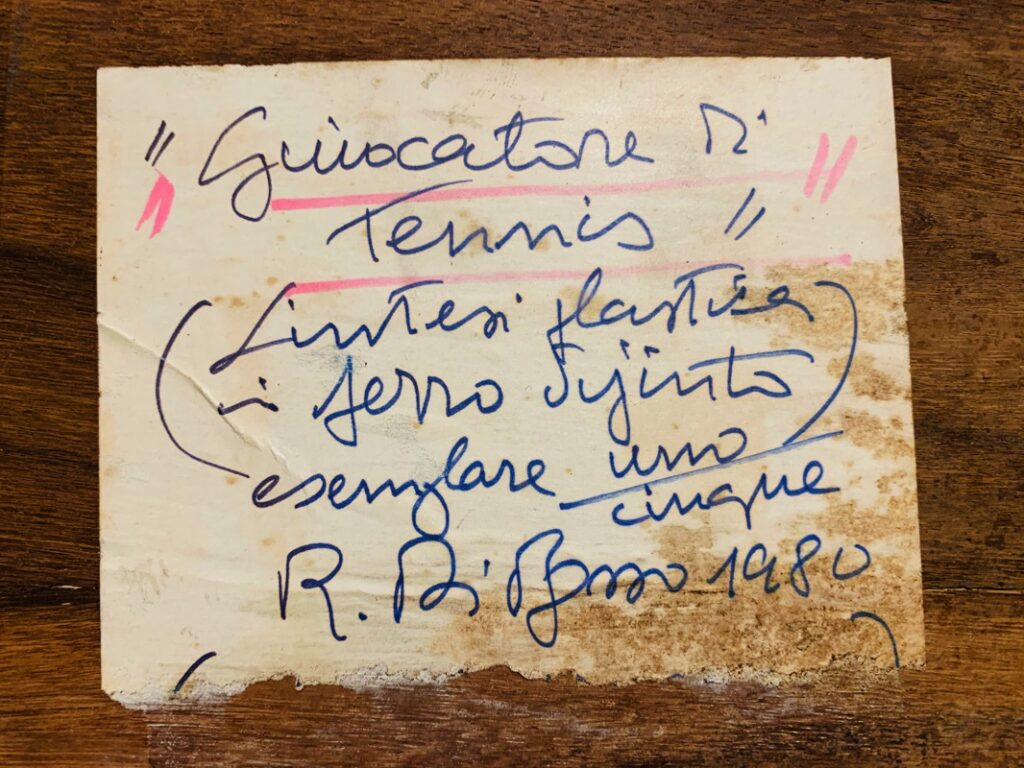 "Giuocatore Di
Tennis"
(Sintesi plastica
in ferro dipinto)
esemplare uno
cinque
R. Di Bosso 1980